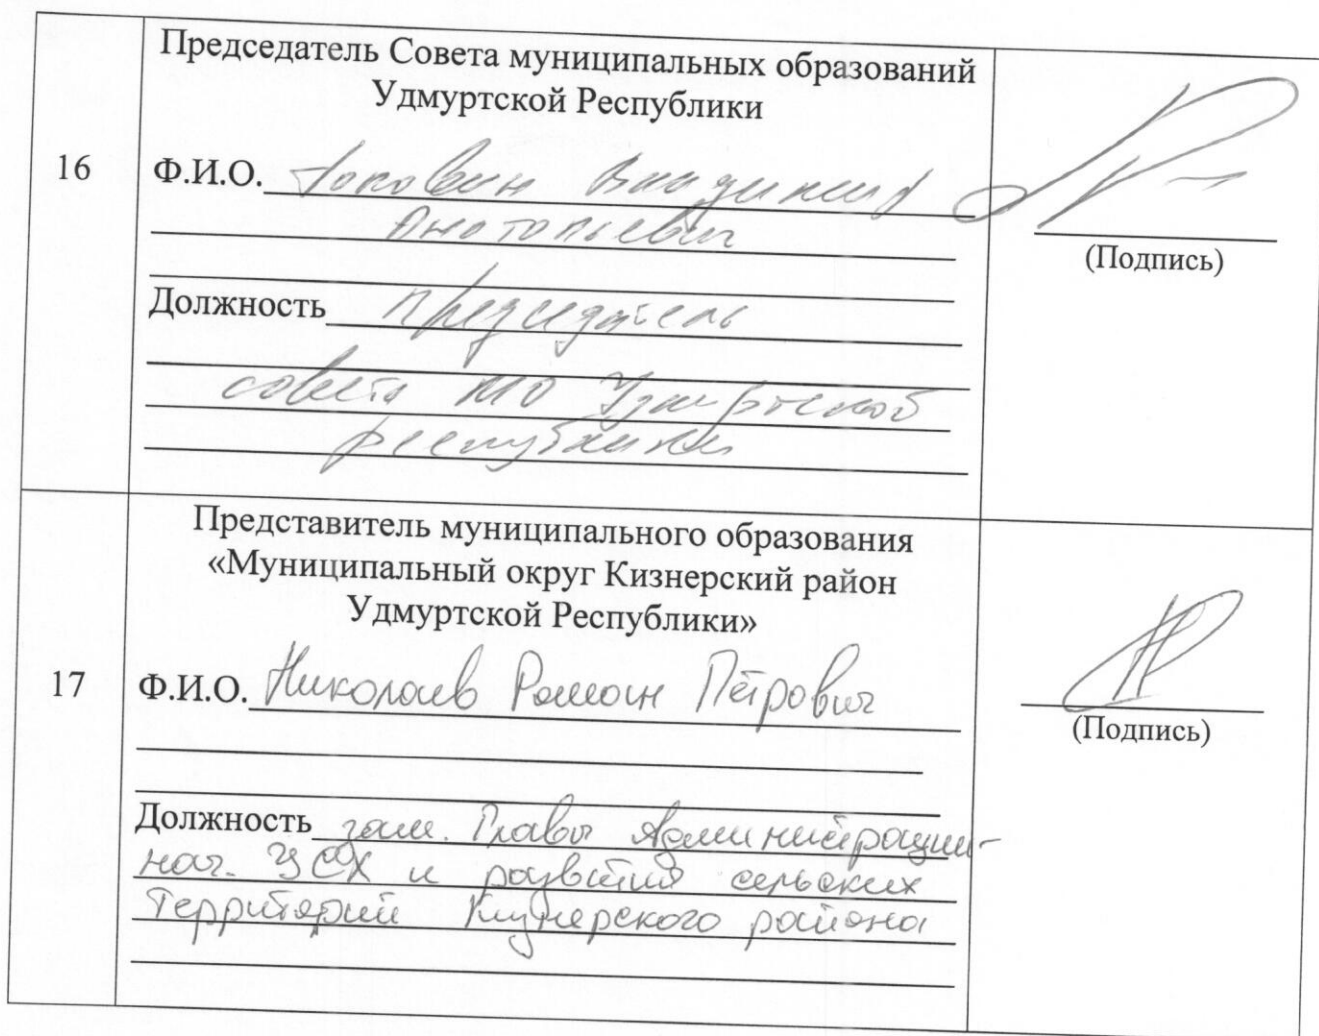 Председатель Совета муниципальных образований
Удмуртской Республики
16
Ф.И.О. Владимир
Анатольевич
(Подпись)
Должность председатель
совета МО Удмуртской
республики
Представитель муниципального образования
«Муниципальный округ Кизнерский район
Удмуртской Республики»
17
Ф.И.О. Николаев Роман Петрович
(Подпись)
Должность зам. Главы Администрации-
нач. УСХ и развития сельских
территорий Кизнерского района